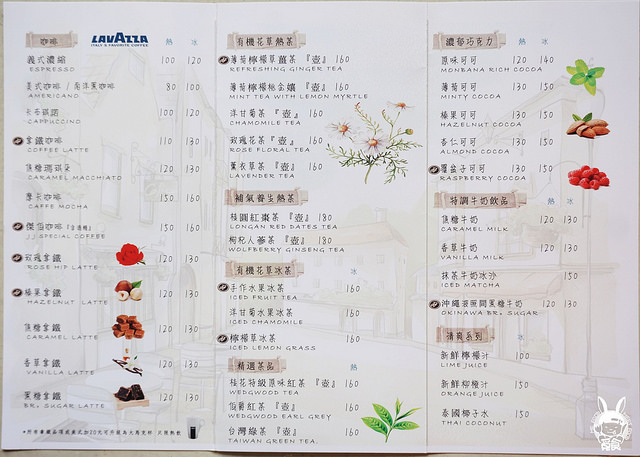 咖啡 LAVAZZA 熱 冰
ITALY'S FAVORITE COFFEE
義式濃縮 100 120
ESPRESSO
美式咖啡 / 海洋黑咖啡 80 100
AMERICANO
卡布琪諾 100 120
CAPPUCCINO
拿鐵咖啡 110 130
COFFEE LATTE
焦糖瑪琪朵 120 130
CARAMEL MACCHIATO
摩卡咖啡 150 160
CAFFE MOCHA
傑伯咖啡 150 160
J.J.SPECIAL COFFEE
玫瑰拿鐵 120 130
ROSE HIP LATTE
榛果拿鐵 120 130
HAZELNUT LATTE
焦糖拿鐵 120 130
CARAMEL LATTE
香草拿鐵 120 130
VANILLA LATTE
黑糖拿鐵 120 130
BR. SUGAR LATTE
有機花草熱茶 熱
薄荷檸檬草薑茶『壺』 160
REFRESHING GINGER TEA
薄荷檸檬桃金孃『壺』 160
MINT TEA WITH LEMON MYRTLE
洋甘菊茶『壺』 160
CHAMOMILE TEA
玫瑰花茶『壺』 160
ROSE FLORAL TEA
薰衣草茶『壺』 160
LAVENDER TEA
補氣養生熱茶
桂圓紅棗茶『壺』 180
LONGAN RED DATES TEA
枸杞人蔘茶『壺』 180
WOLFBERRY GINSENG TEA
有機花草冰茶 冰
手作水果冰茶 160
ICED FRUIT TEA
洋甘菊水果冰茶 160
ICED CHAMOMILE
檸檬草冰茶 160
ICED LEMON GRASS
精選茶品 熱
桂花特級原味紅茶『壺』 160
WEDGWOOD TEA
伯爵紅茶『壺』 160
WEDGWOOD EARL GREY
台灣綠茶『壺』 160
TAIWAN GREEN TEA
濃郁巧克力 熱 冰
原味可可 120 140
MONBANA RICH COCOA
薄荷可可 130 150
MINTY COCOA
榛果可可 130 150
HAZELNUT COCOA
杏仁可可 130 150
ALMOND COCOA
覆盆子可可 130 150
RASPBERRY COCOA
特調牛奶飲品 熱 冰
焦糖牛奶 120 130
CARAMEL MILK
香草牛奶 120 130
VANILLA MILK
抹茶牛奶冰沙 150
ICED MATCHA
沖繩波照間黑糖牛奶 120 130
OKINAWA BR. SUGAR
清爽系列 冰
新鮮檸檬汁 100
LIME JUICE
新鮮柳橙汁 150
ORANGE JUICE
泰國椰子水 150
THAI COCONUT